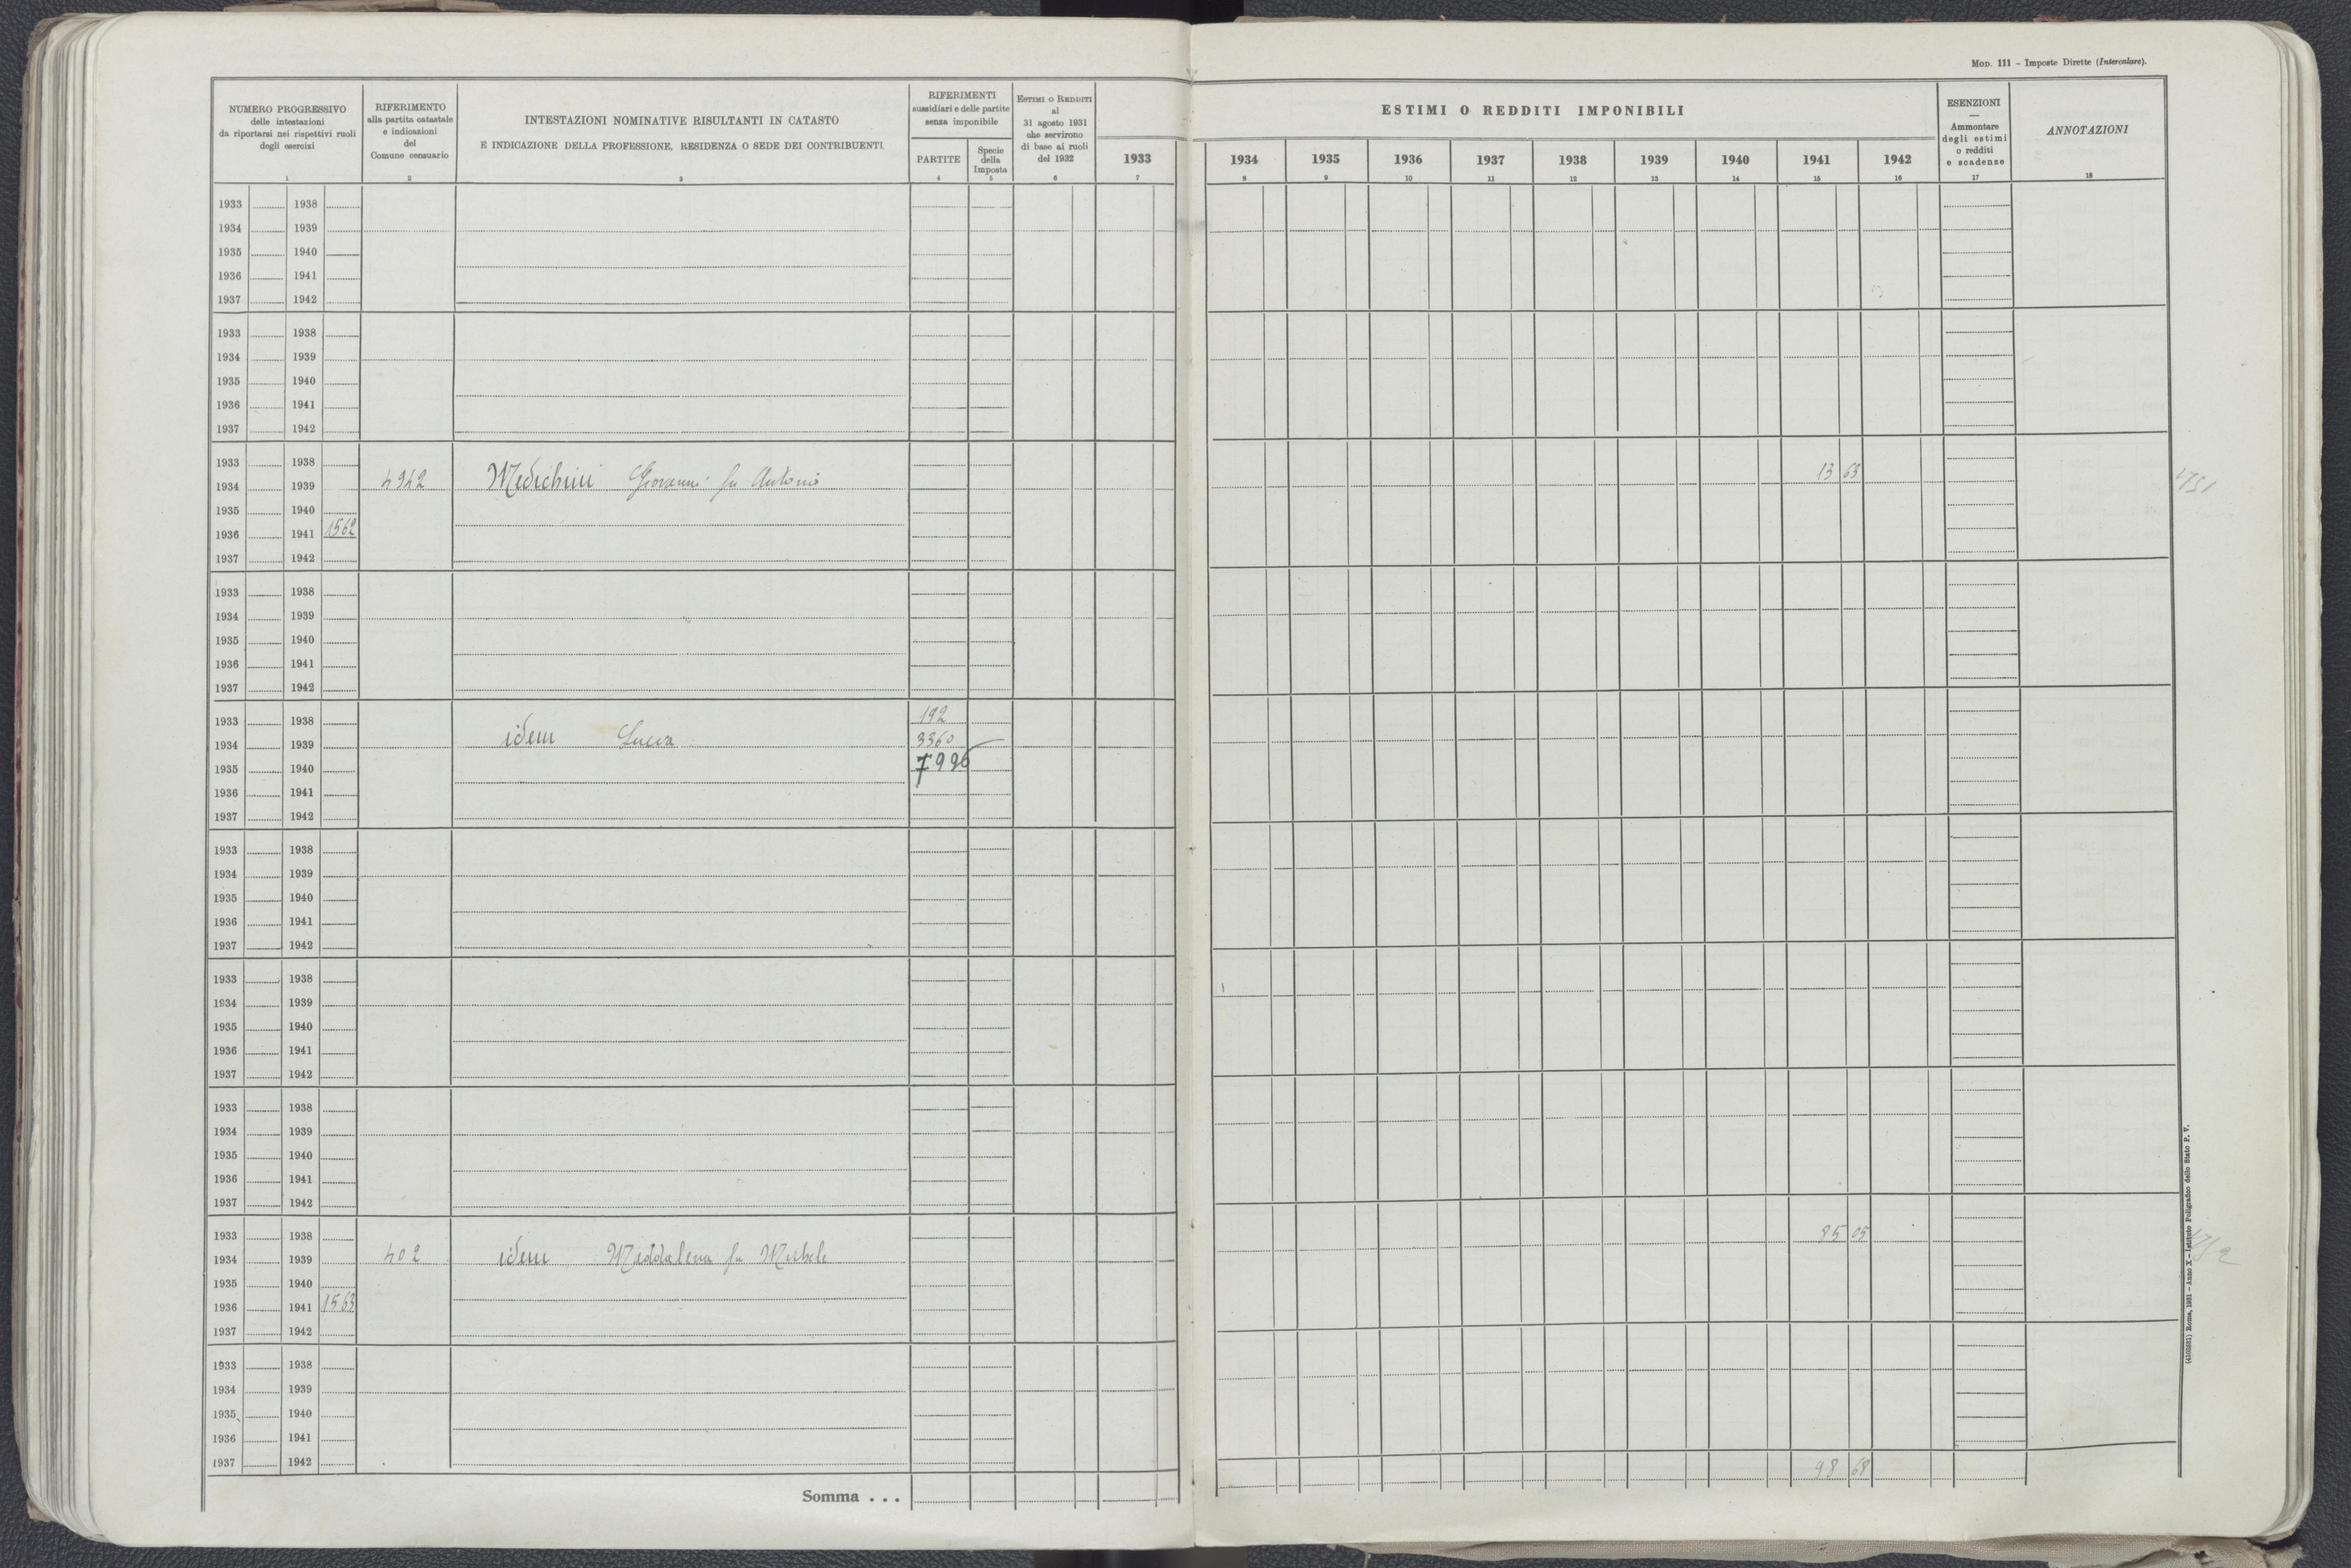 MOD. 111 – Imposte Dirette (Intercalare).
NUMERO PROGRESSIVO
delle intestazioni
da riportarsi nei rispettivi ruoli
degli esercizi
1
RIFERIMENTO
alla partita catastale
e indicazioni
del
Comune censuario
2
INTESTAZIONI NOMINATIVE RISULTANTI IN CATASTO
E INDICAZIONE DELLA PROFESSIONE, RESIDENZA O SEDE DEI CONTRIBUENTI
3
RIFERIMENTI
sussidiari e delle partite
senza imponibile
PARTITE
4
Specie
della
Imposta
5
ESTIMI O REDDITI
al
31 agosto 1931
che servirono
di base ai ruoli
del 1932
6
1933
7
ESTIMI O REDDITI IMPONIBILI
1934 1935 1936 1937 1938 1939 1940 1941 1942
8 9 10 11 12 13 14 15 16
ESENZIONI
—
Ammontare
degli estimi
o redditi
e scadenze
17
ANNOTAZIONI
18
1933 1938
1934 1939
1935 1940
1936 1941
1937 1942
1933 1938
1934 1939
1935 1940
1936 1941
1937 1942
1933 1938
1934 1939 4942 Medichini Giovanni fu Antonio 13 63
1935 1940
1936 1941 1562
1937 1942
1933 1938
1934 1939
1935 1940
1936 1941
1937 1942
1933 1938 192
1934 1939 idem Lucia 3360
1935 1940 7996
1936 1941
1937 1942
1933 1938
1934 1939
1935 1940
1936 1941
1937 1942
1933 1938
1934 1939
1935 1940
1936 1941
1937 1942
1933 1938
1934 1939
1935 1940
1936 1941
1937 1942
1933 1938 85 05
1934 1939 402 idem Maddalena fu Michele
1935 1940
1936 1941 1563
1937 1942
1933 1938
1934 1939
1935 1940
1936 1941
1937 1942
Somma . . . 98 68
(4103531) Roma, 1931 – Anno X – Istituto Poligrafico dello Stato P. V.